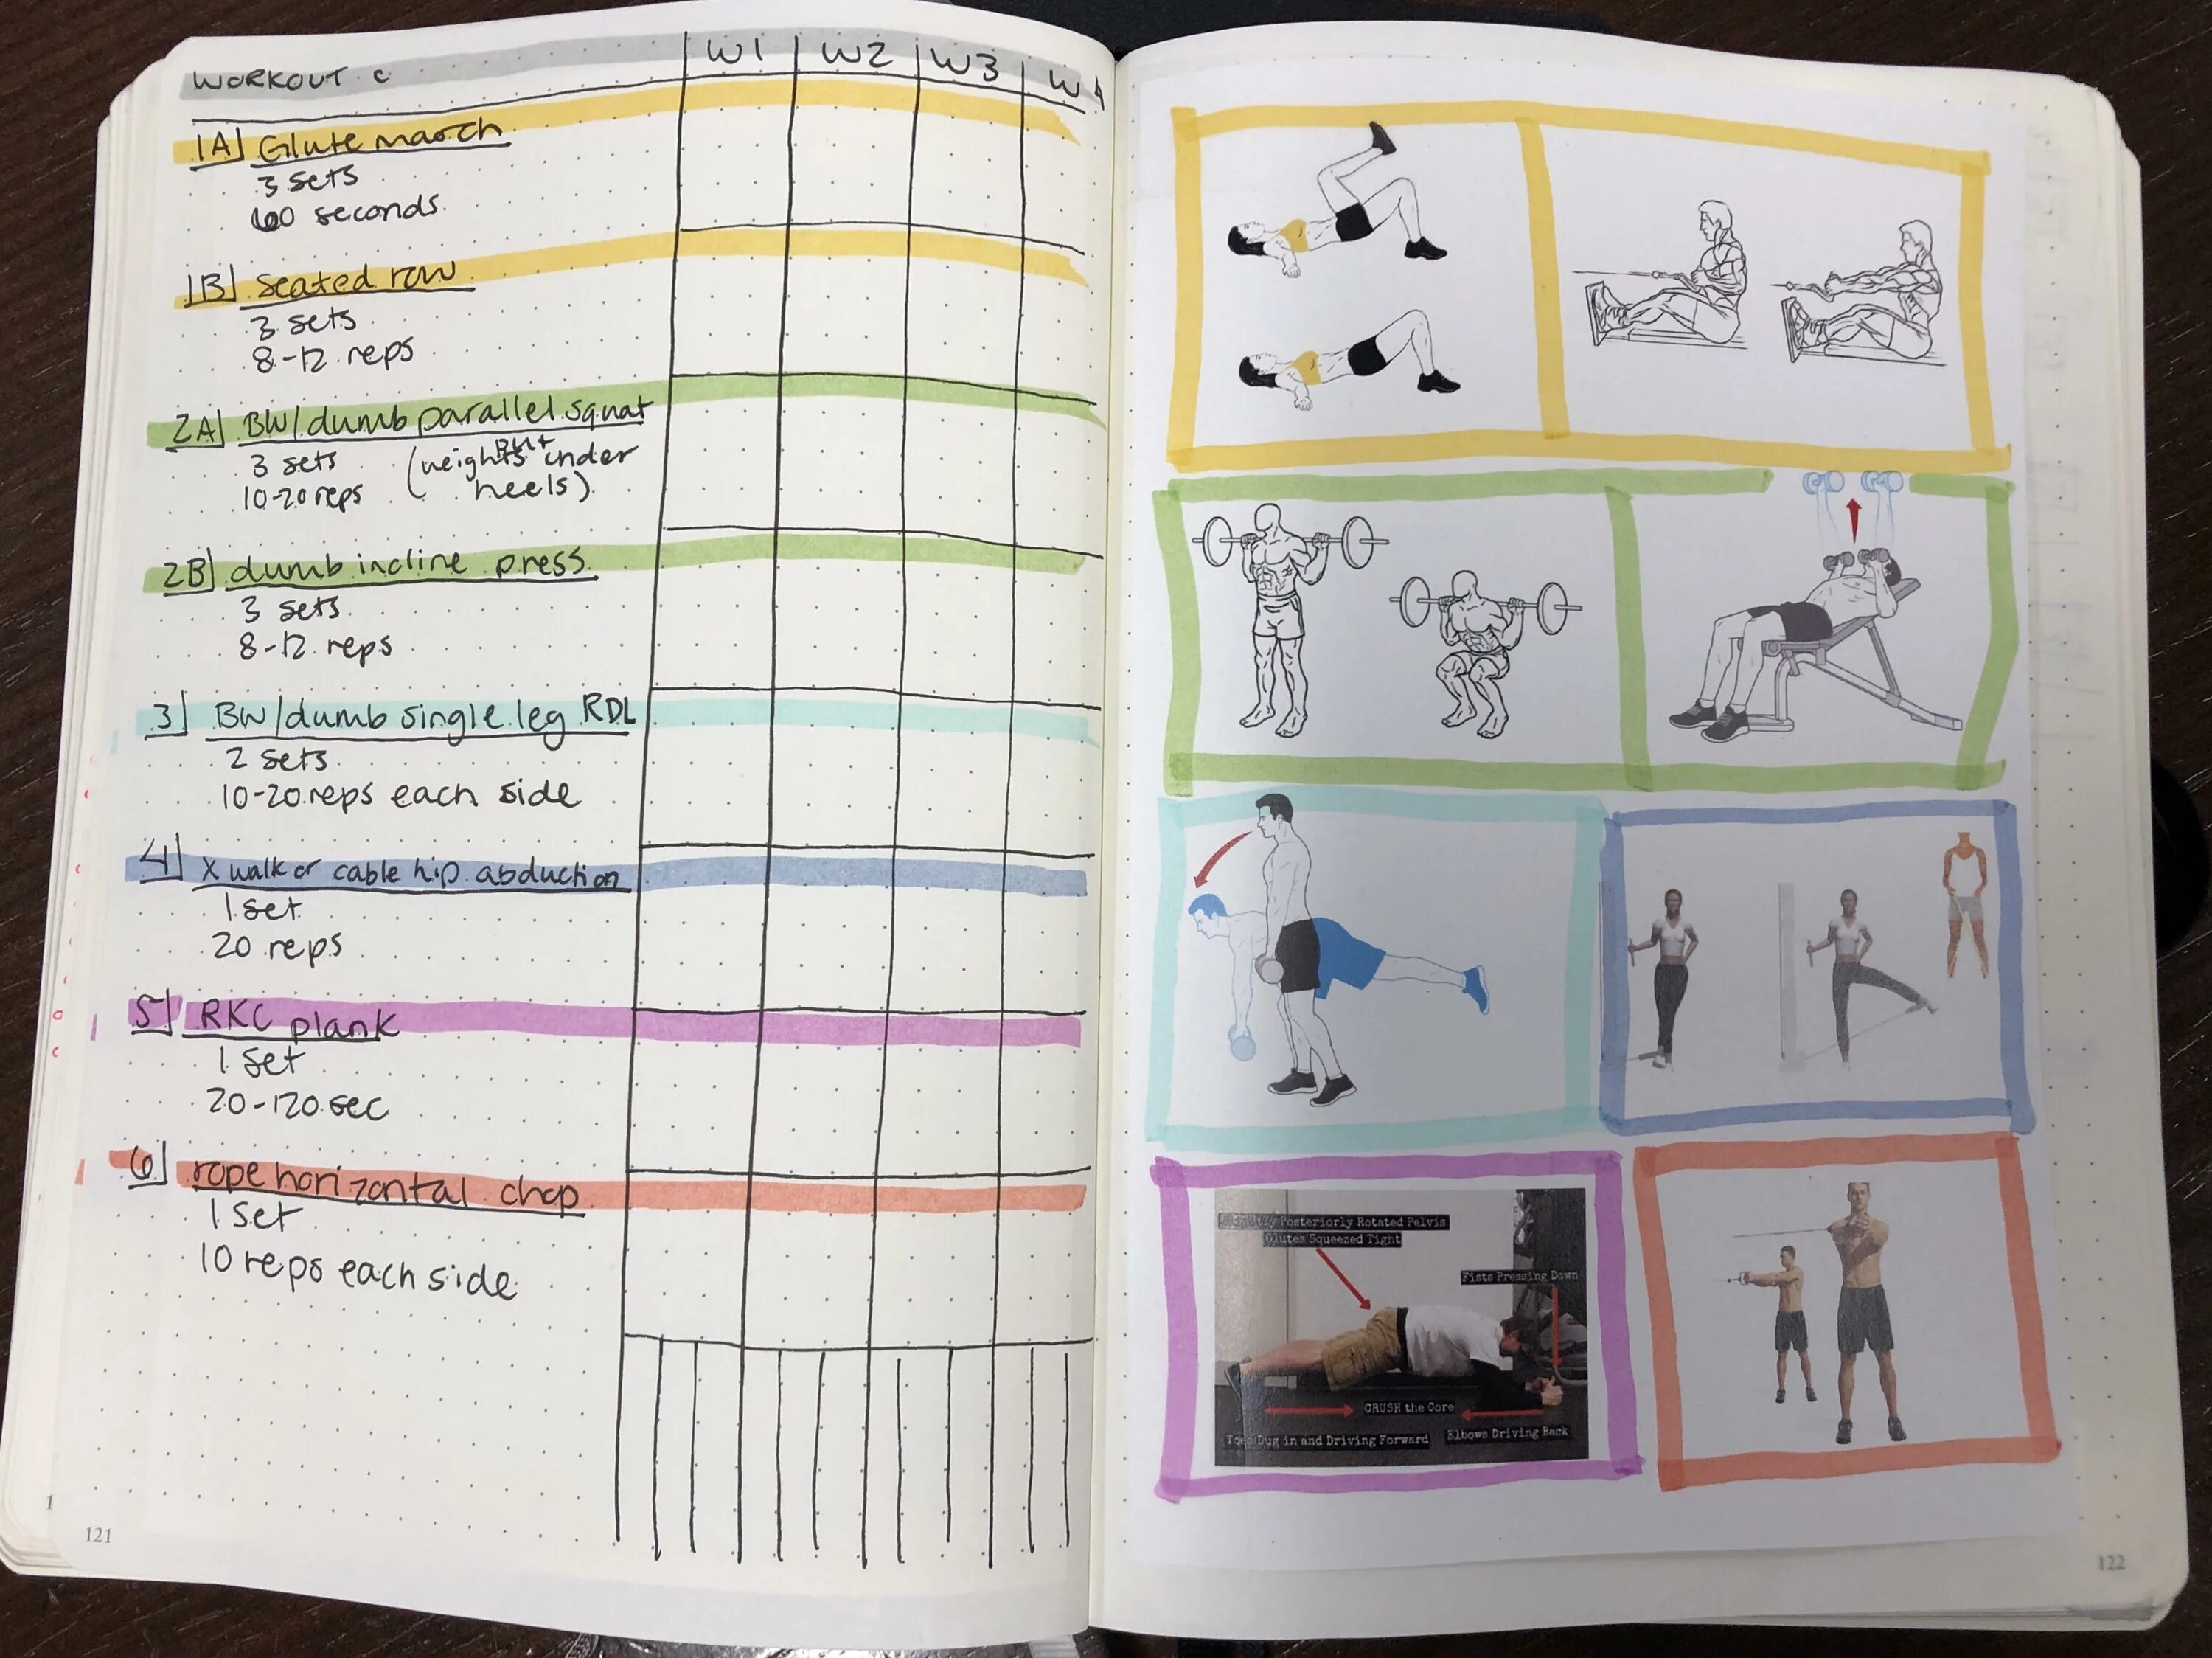 WORKOUT C W1 W2 W3 W4
1A] Glute march
3 sets
60 seconds
1B] seated row
3 sets
8-12 reps
2A] BW/dumb parallel squat
3 sets (weights under
10-20 reps heels)
2B] dumb incline press
3 sets
8-12 reps
3] BW/dumb single leg RDL
2 sets
10-20 reps each side
4] X walk or cable hip abduction
1 set
20 reps
5] RKC plank
1 set
20-120 sec
6] rope horizontal chop
1 set
10 reps each side
1
121
Posteriorly Rotated Pelvis
Glutes Squeezed Tight
Fists Pressing Down
CRUSH the Core
Toes Dug in and Driving Forward
Elbows Driving Back
122